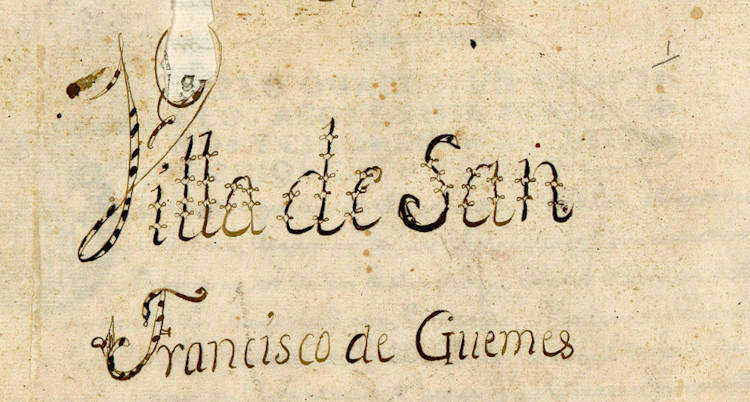 Villa de San
Francisco de Guemes